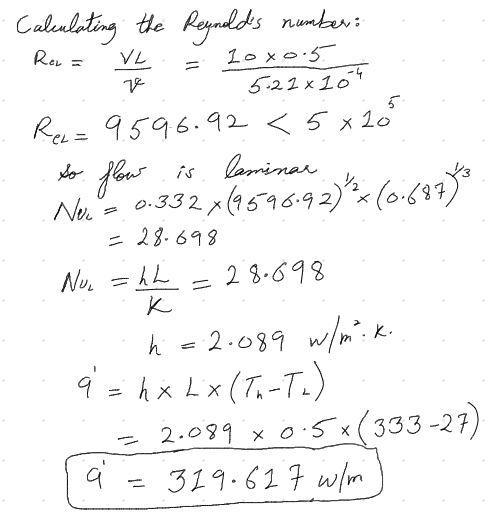 Calculating the Reynold's number:
Re_L = VL/ν = 10 × 0.5 / 5.21 × 10^-4
Re_L = 9596.92 < 5 × 10^5
so flow is laminar
Nu_L = 0.332 × (9596.92)^1/2 × (0.687)^1/3
= 28.698
Nu_L = hL/K = 28.698
h = 2.089 w/m².K.
q' = h × L × (T_h - T_L)
= 2.089 × 0.5 × (333-27)
q' = 319.617 w/m